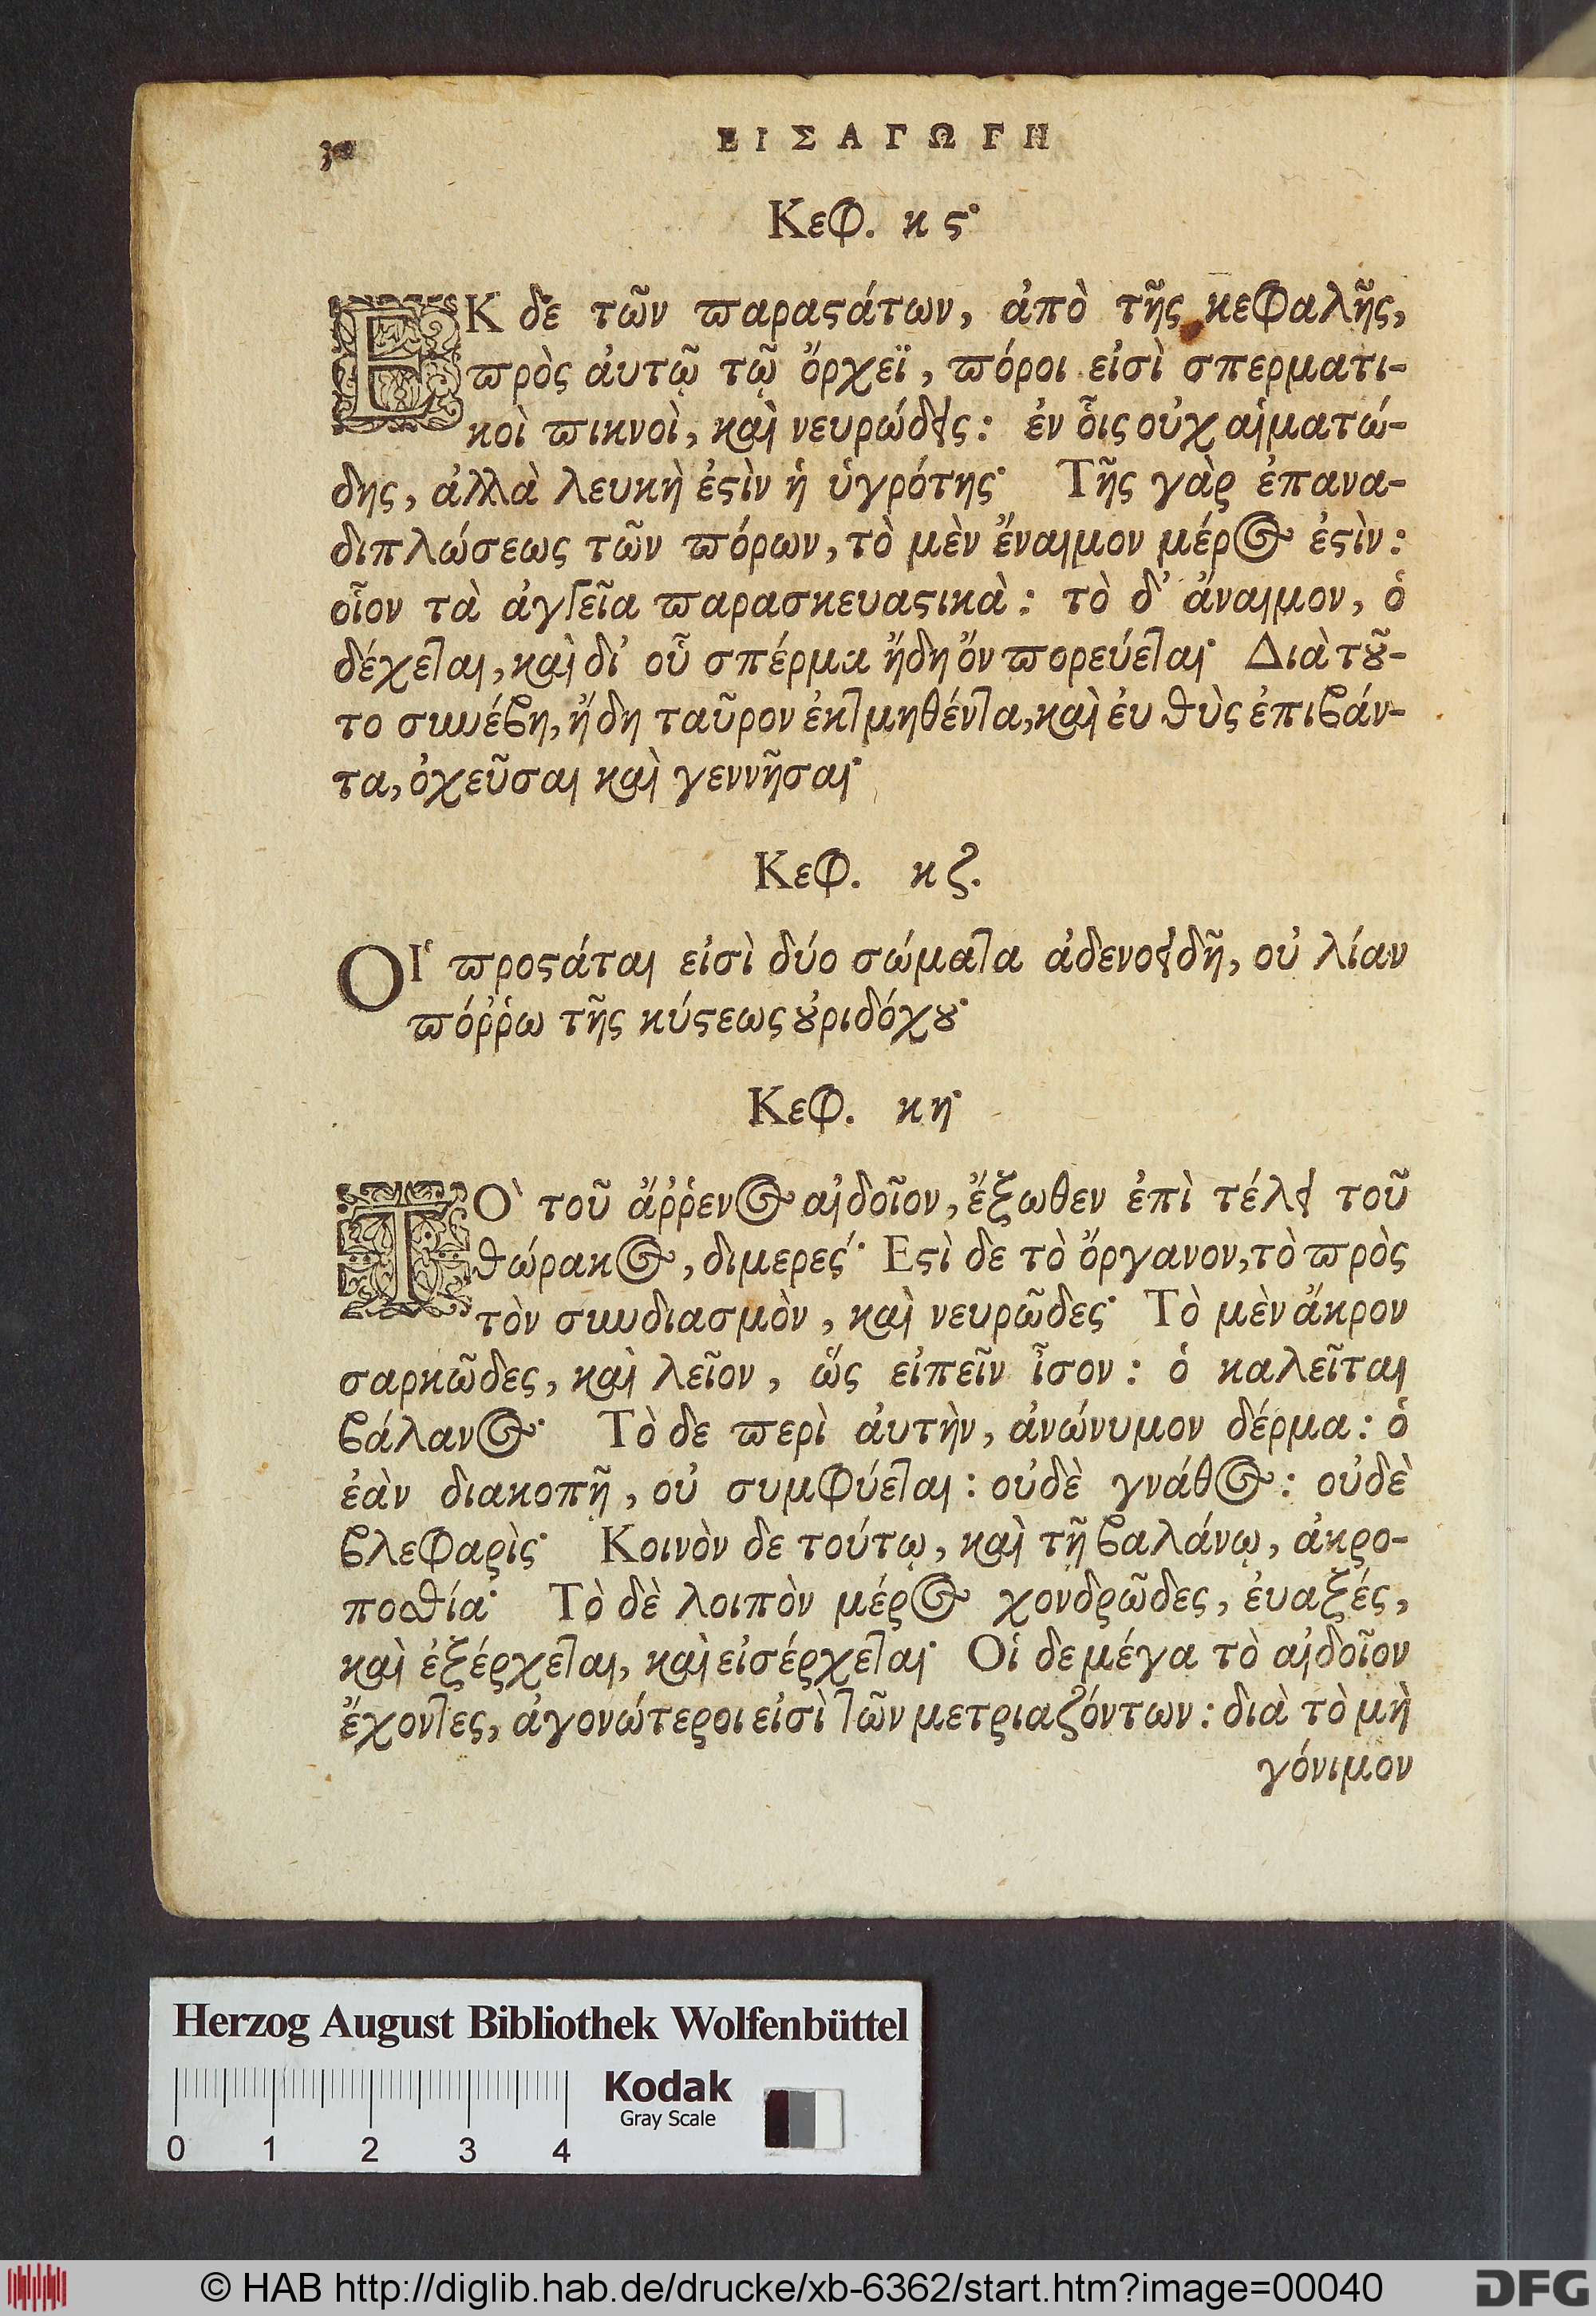 ΕΙΣΑΓΩΓΗ
Κεφ. κϛ·
ΕΚ δε τῶν παραϛάτων, ἀπὸ τῆς κεφαλῆς,
πρὸς ἀυτῷ τῷ ὄρχεϊ, πόροι εἰσὶ σπερματι-
κοὶ πικνοὶ, καὶ νευρώδεις: ἐν ὧις οὐχ αἱματώ-
δης, ἀλλὰ λευκὴ ἐϛὶν ἡ ὑγρότης· Τῆς γὰρ ἐπανα-
διπλώσεως τῶν πόρων, τὸ μὲν ἔναιμον μέρος ἐϛὶν:
οἷον τὰ ἀγγεῖα παρασκευαϛικὰ: τὸ δ' ἄναιμον, ὁ
δέχεται, καὶ δι' οὗ σπέρμα ἤδη ὄν πορεύεται· Διὰ τȣ͂-
το συνέβη, ἤδη ταῦρον ἐκτμηθέντα, καὶ ἐυθὺς ἐπιβάν-
τα, ὀχεῦσαι καὶ γεννῆσαι·
Κεφ. κζ.
ΟΙ῾ προϛάται εἰσὶ δύο σώματα ἀδενοειδῆ, οὐ λίαν
πόῤῥω τῆς κύϛεως ȣ̓ριδόχȣ·
Κεφ. κη·
ΤΟ` τοῦ ἄῤῥενος αἰδοῖον, ἔξωθεν ἐπὶ τέλει τοῦ
θώρακος, διμερεϛ́· Εϛὶ δε τὸ ὄργανον, τὸ πρὸς
τὸν συνδιασμὸν, καὶ νευρῶδες· Τὸ μὲν ἄκρον
σαρκῶδες, καὶ λεῖον, ὥς εἰπεῖν ἶσον: ὁ καλεῖται
βάλανος· Τὸ δε περὶ ἀυτὴν, ἀνώνυμον δέρμα: ὁ
ἐὰν διακοπῇ, οὐ συμφύεται: οὐδὲ γνάθος: οὐδὲ
βλεφαρὶς· Κοινὸν δε τούτῳ, καὶ τῇ βαλάνῳ, ἀκρο-
ποσθία· Τὸ δὲ λοιπὸν μέρος χονδρῶδες, ἐυαξές,
καὶ ἐξέρχεται, καὶ εἰσέρχεται· Οἱ δε μέγα τὸ αἰδοῖον
ἔχοντες, ἀγονώτεροι εἰσὶ τῶν μετριαζόντων: διὰ τὸ μὴ
γόνιμον
Herzog August Bibliothek Wolfenbüttel
Kodak
Gray Scale
0 1 2 3 4
© HAB http://diglib.hab.de/drucke/xb-6362/start.htm?image=00040
DFG